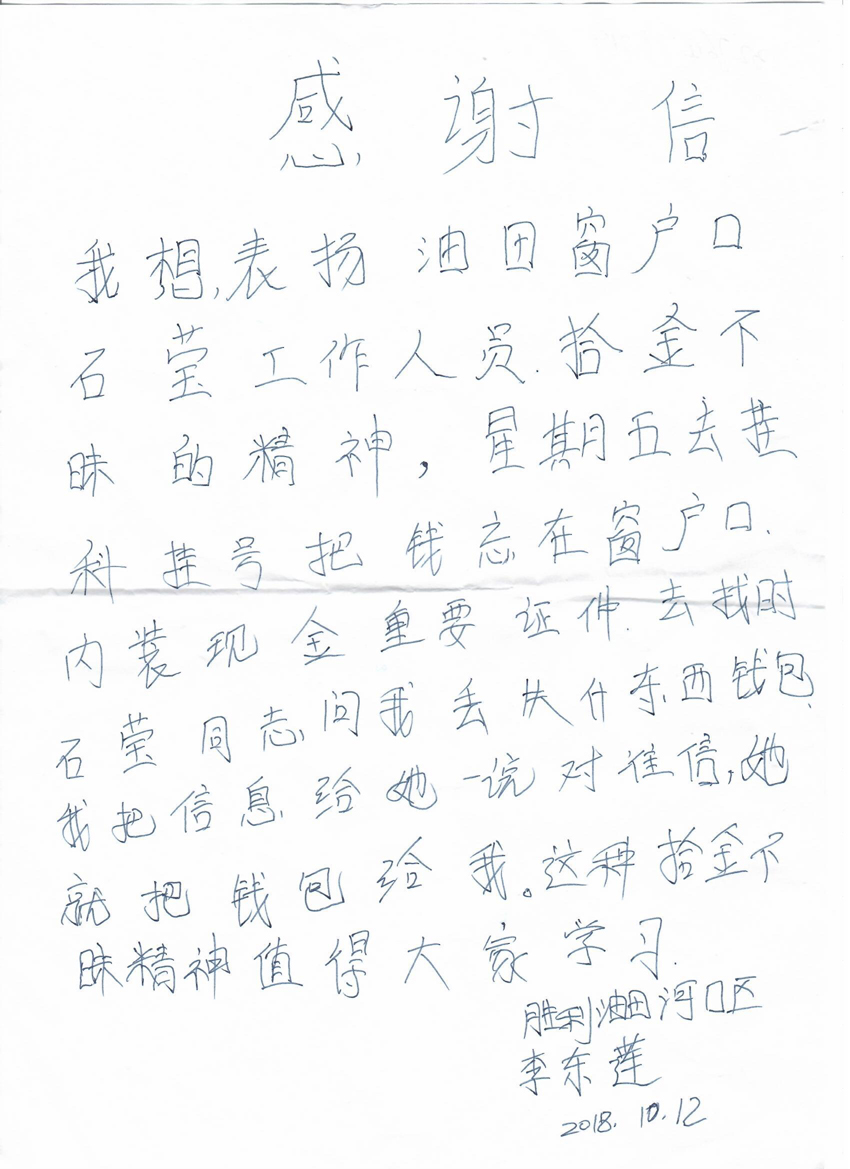 感谢信
我想,表扬油田窗户口
石莹工作人员.拾金不
昧的精神,星期五去
科挂号把钱忘在窗户口.
内装现金重要证件.去找时
石莹同志问我丢失什东西钱包.
我把信息给她一说对准信,她
就把钱包给我。这种拾金不
昧精神值得大家学习.
胜利油田河口区
李东莲
2018.10.12